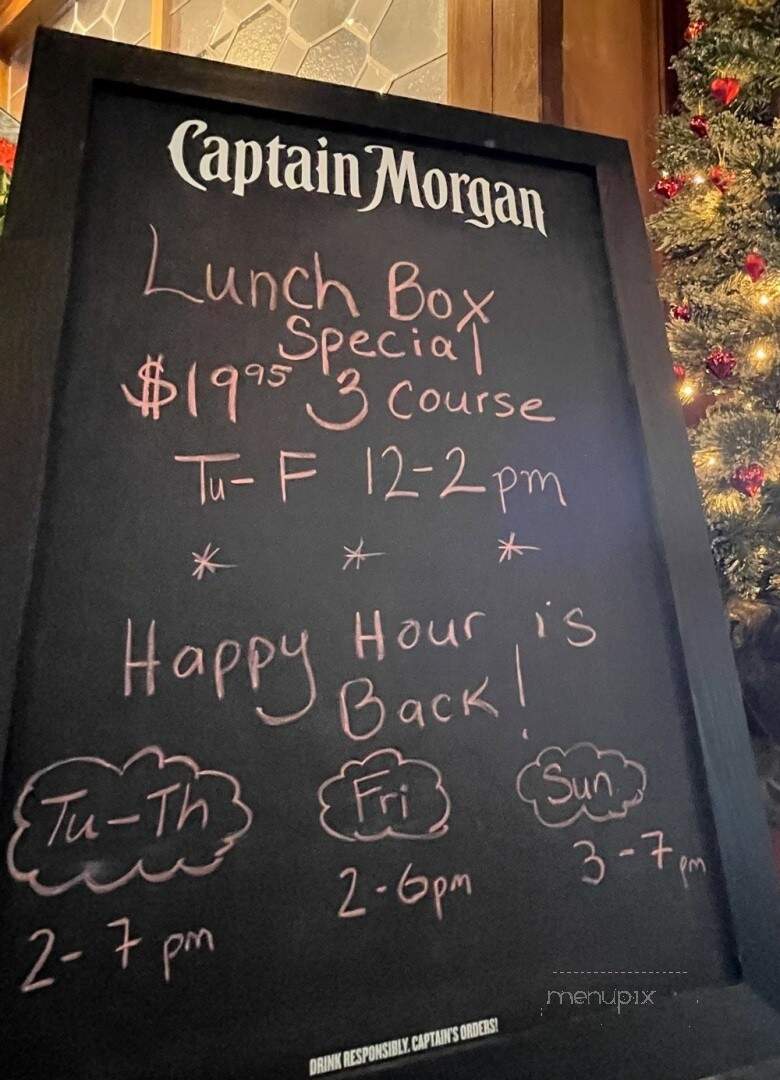 Captain Morgan
Lunch Box
Special
$19.95 3 Course
Tu-F 12-2 pm
* * *
Happy Hour is
Back!
Tu-Th Fri Sun
2-7 pm 2-6pm 3-7pm
menupix
DRINK RESPONSIBLY. CAPTAIN'S ORDERS!